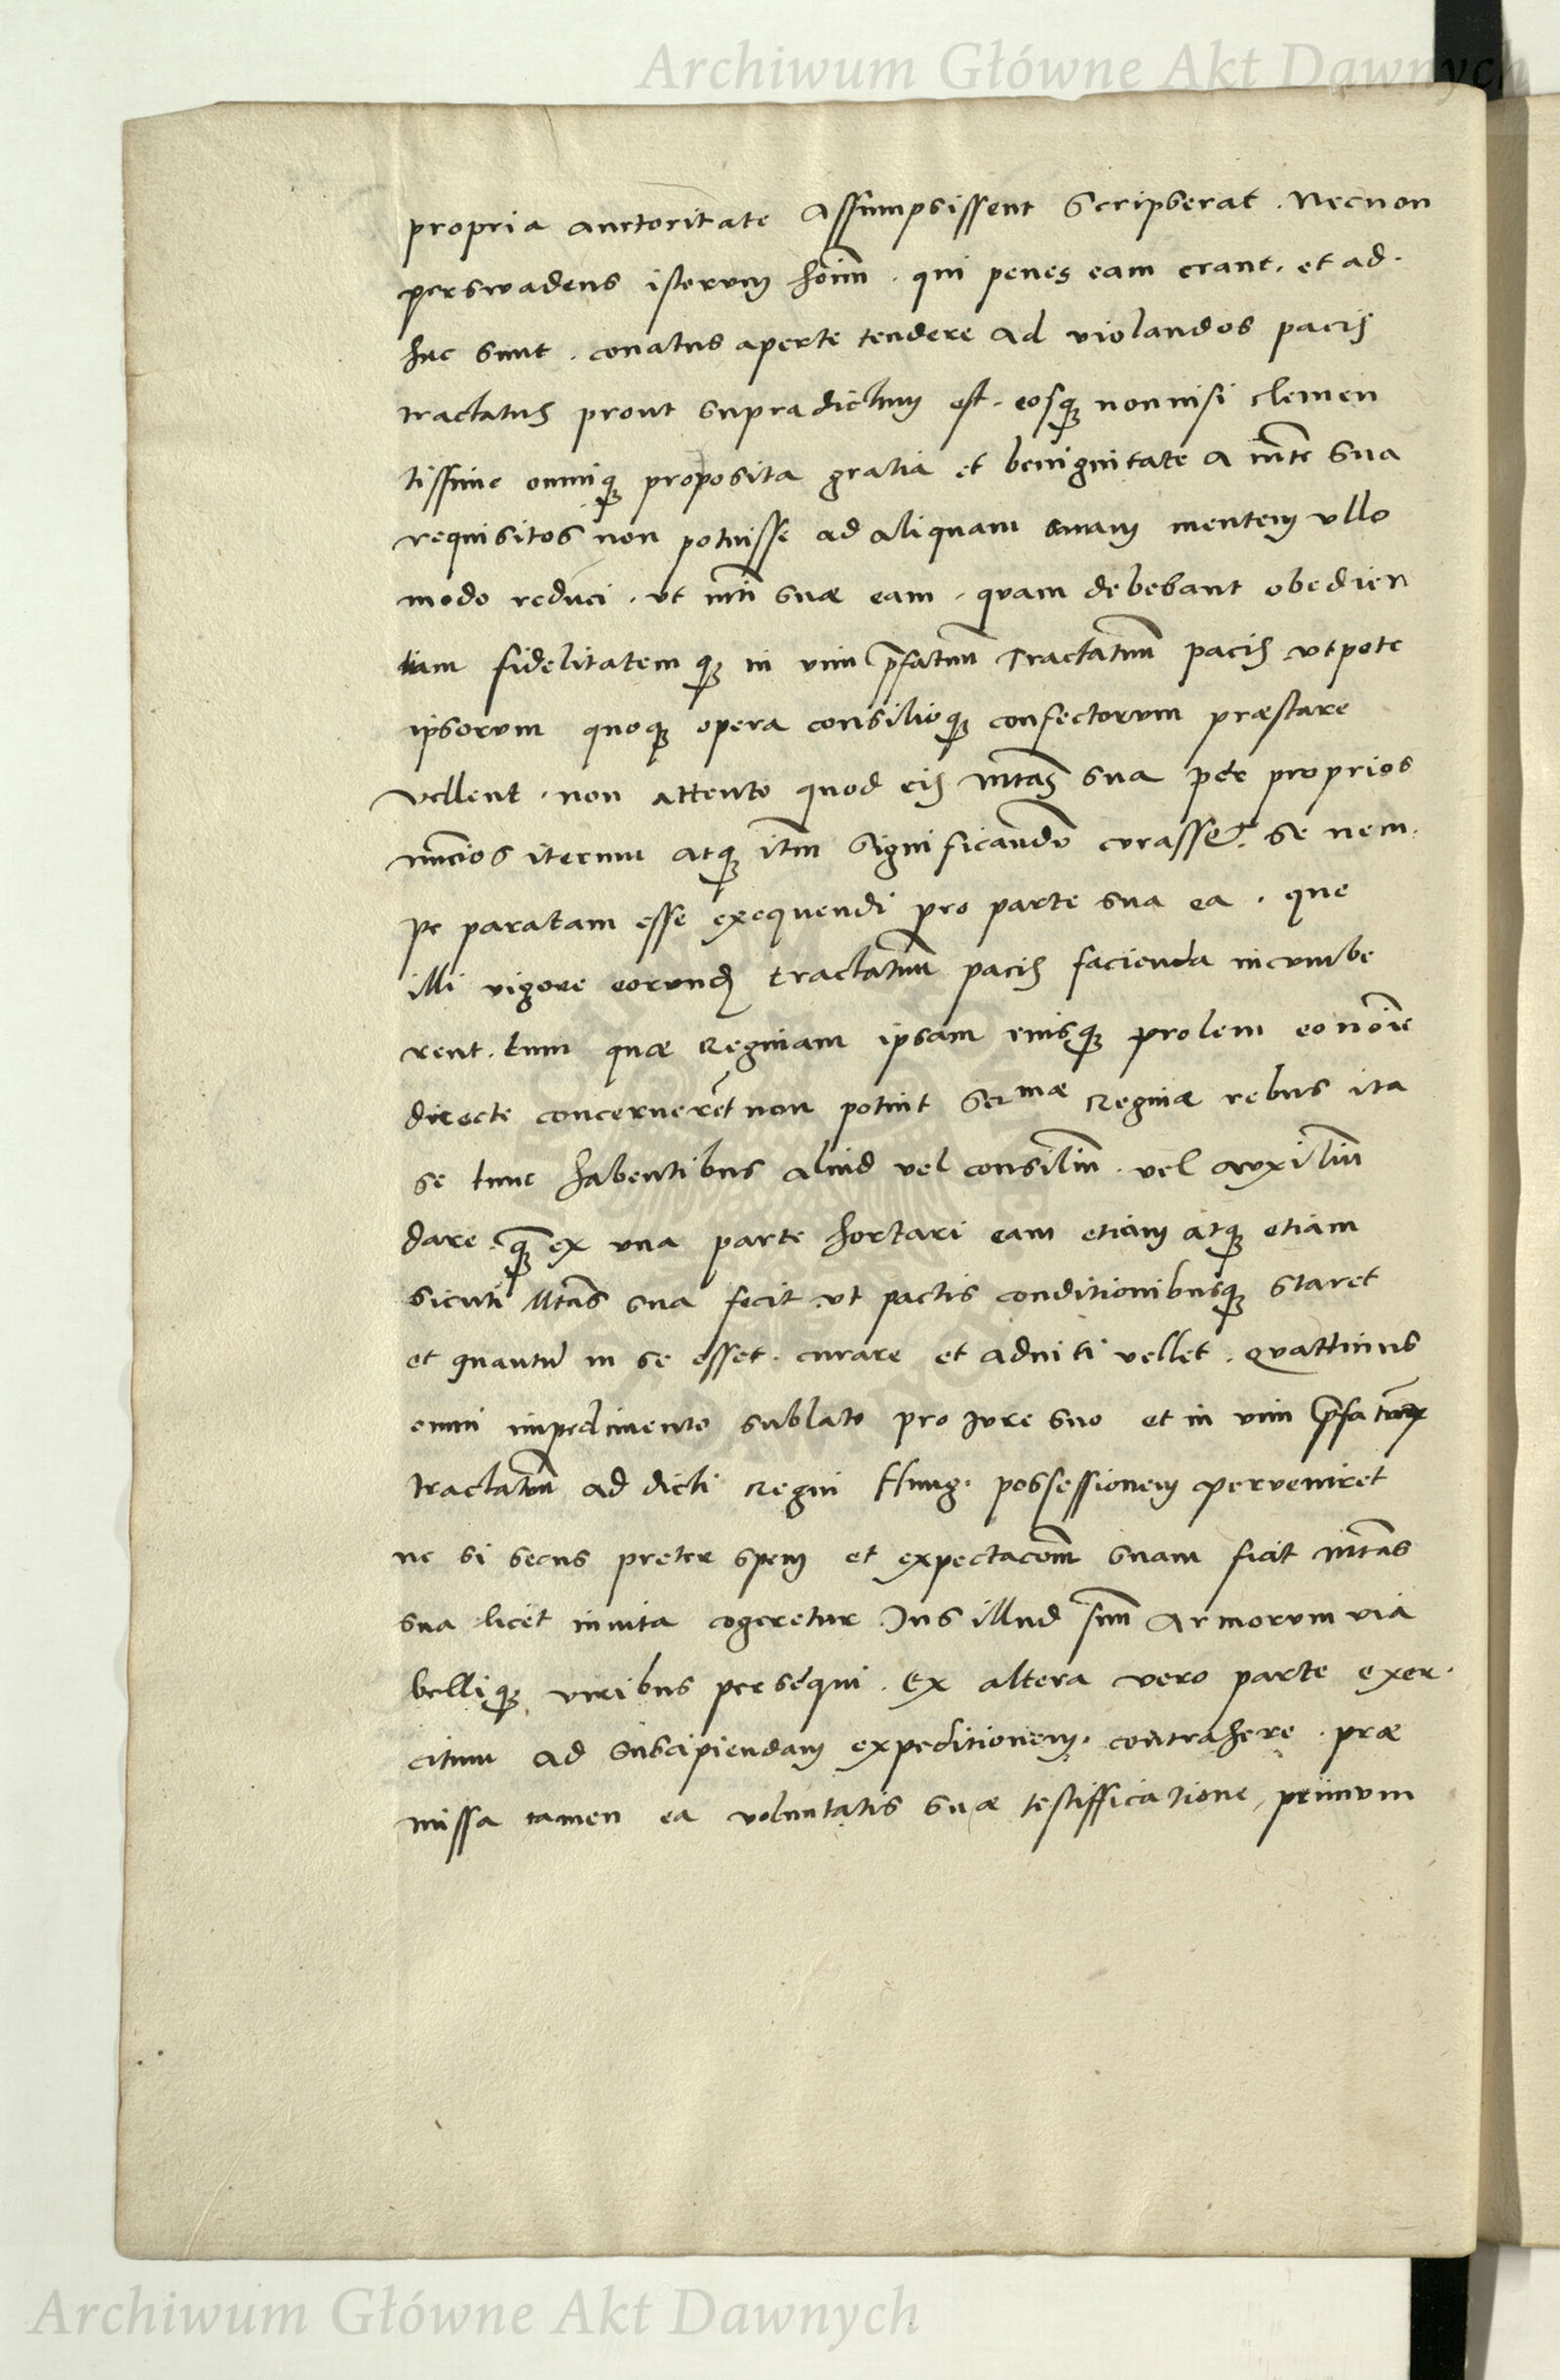 Archiwum Główne Akt Dawnych
propria auctoritate Assumpsissent Scripserat. Necnon
perswadens istorum hoīm. qui penes eam erant. et ad-
huc sunt. conatus aperte tendere ad violandos pacis
tractatus prout supradictum est. eosq; nonnisi clemen
tissime omniq; proposita gratia et benignitate a mte sua
requisitos non potuisse ad aliquam suam mentem ullo
modo reduci. ut mti suæ eam. quam debebant obedien
tiam fidelitatemq; in vim p̄fatum Tractatuum pacis utpote
ipsorum quoq; opera consilioq; confectorum præstare
vellent. non attento quod eis mtas sua per proprios
nuncios iterum atq; itm significandum curasset. se nem-
pe paratam esse exequendi pro parte sua ea. que
illi vigore eorund tractatuum pacis facienda incumbe
rent. tum quæ Reginam ipsam eiusq; prolem eo noīe
directe concernerēt non potuit Ser mæ Reginæ rebus ita
se tunc habentibus aliud vel consilium. vel auxilium
dare. q; ex una parte hortari eam etiam atq; etiam
sicuti Mtas sua fecit ut pactis conditionibusq; staret
et quantū in se esset. curare et adniti vellet. quattinus
omni impedimento sublato pro jure suo et in vim p̄fatum
tractatuum ad dicti Regni Hung. possessionem perveniret
ne si secus preter spem et expectacōm suam fiat mtas
sua licet invita cogeretur Jus illud suum armorum via
belliq; viribus persequi. Ex altera vero parte exer-
citum ad suscipiendam expeditionem. contrahere. præ
missa tamen ea voluntatis suæ testifficatione, primum
Archiwum Główne Akt Dawnych